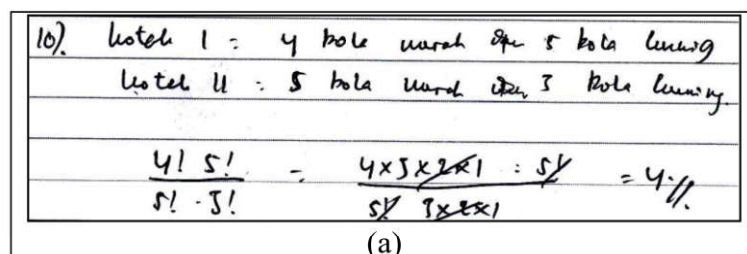 10). kotak I = 4 bola merah dan 5 bola kuning
kotak II = 5 bola merah dan 3 bola kuning.
4! 5! / 5! · 3! = 4×3×2×1 : 5! / 5! 3×2×1 = 4 //.
(a)